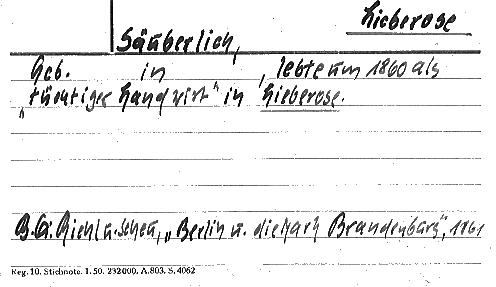 Lieberose
Säuberlich,
Geb. in , lebte um 1860 als
"tüchtiger Landwirt" in Lieberose.
B.G. Riehl u. Scheu, „Berlin u. die Mark Brandenburg", 1861
Reg. 10. Stichnote. 1. 50. 232000. A. 803. S. 4062